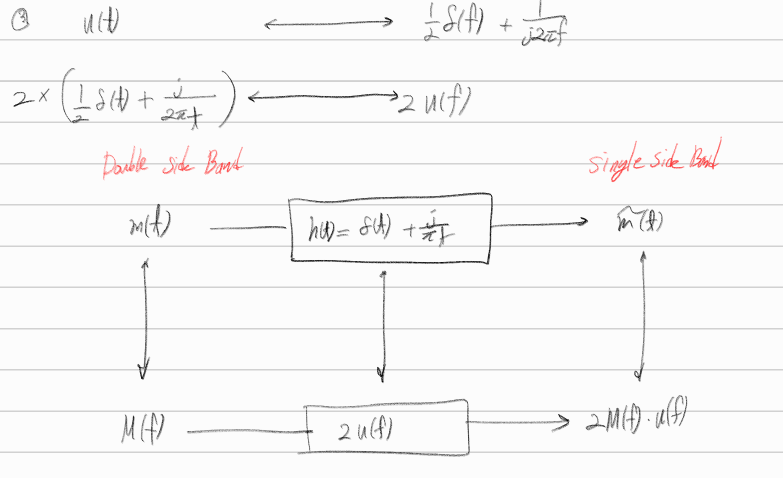 ③ u(t) ⟷ 1/2 δ(f) + 1/(j2πf)
2 × (1/2 δ(t) + j/(2πt)) ⟷ 2 u(f)
Double side Band Single side Band
m(t) h(t) = δ(t) + j/(πt) m̃(t)
M(f) 2 u(f) 2M(f)·u(f)